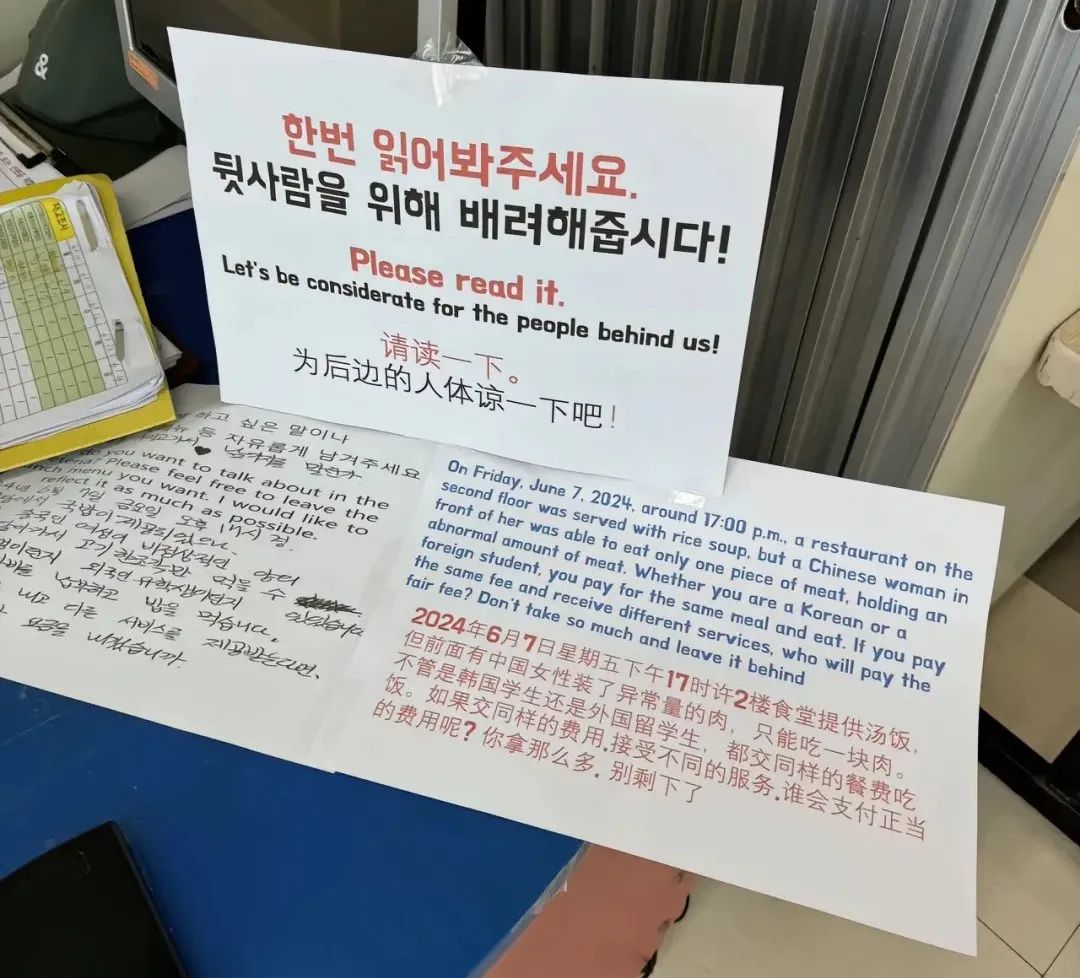 &
한번 읽어봐주세요.
뒷사람을 위해 배려해줍시다!
Please read it.
Let's be considerate for the people behind us!
请读一下。
为后边的人体谅一下吧!
하고 싶은 말이나
등 자유롭게 남겨주세요
do you want to talk about in the
Please feel free to leave the
menu you want. I would like to
reflect it as much as possible.
7일 금요일 오후 17시 경.
국밥이 제공되었으나.
중국인 여성이 비정상적인 양의
고기 한조각만 먹을 수
외국인 유학생이던지
납부하고 밥을 먹습니다.
내고 다른 서비스를 제공받는다면.
요금을 내겠습니까.
On Friday, June 7, 2024, around 17:00 p.m., a restaurant on the
second floor was served with rice soup, but a Chinese woman in
front of her was able to eat only one piece of meat, holding an
abnormal amount of meat. Whether you are a Korean or a
foreign student, you pay for the same meal and eat. If you pay
the same fee and receive different services, who will pay the
fair fee? Don't take so much and leave it behind
2024年6月7日星期五下午17时许2楼食堂提供汤饭,
但前面有中国女性装了异常量的肉, 只能吃一块肉。
不管是韩国学生还是外国留学生, 都交同样的餐费吃
饭。如果交同样的费用.接受不同的服务.谁会支付正当
的费用呢? 你拿那么多. 别剩下了